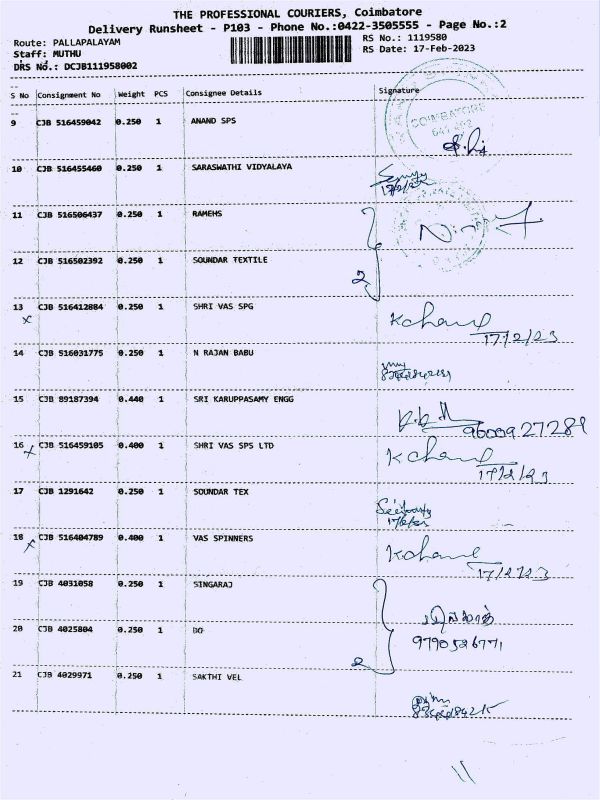 THE PROFESSIONAL COURIERS, Coimbatore
Delivery Runsheet - P103 - Phone No.:0422-3505555 - Page No.:2
Route: PALLAPALAYAM RS No.: 1119580
Staff: MUTHU RS Date: 17-Feb-2023
DRS No.: DCJB111958002
S No Consignment No Weight PCS Consignee Details Signature
COIMBATORE
9 CJB 516459042 0.250 1 ANAND SPS
10 CJB 516455460 0.250 1 SARASWATHI VIDYALAYA
17/2/23
11 CJB 516506437 0.250 1 RAMEHS
12 CJB 516502392 0.250 1 SOUNDAR TEXTILE
2
13 CJB 516412884 0.250 1 SHRI VAS SPG
x
17/2/23
14 CJB 516031775 0.250 1 N RAJAN BABU
15 CJB 89187394 0.440 1 SRI KARUPPASAMY ENGG
9600927289
16 CJB 516459105 0.400 1 SHRI VAS SPS LTD
x
17/2/23
17 CJB 1291642 0.250 1 SOUNDAR TEX
17/2/23
18 CJB 516404789 0.400 1 VAS SPINNERS
x
17/2/23
19 CJB 4031058 0.250 1 SINGARAJ
20 CJB 4025804 0.250 1 DO
9790526771
2
21 CJB 4029971 0.250 1 SAKTHI VEL